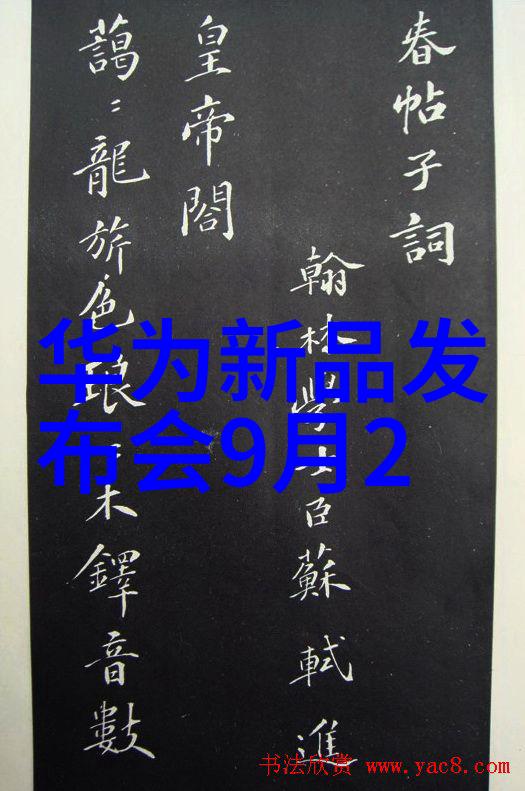 春帖子詞
翰林學士臣蘇軾進
皇帝閤
藹〻龍旂色琅〻木鐸音數
华为新品发
布会9月2
书法欣赏 www.yac8.com